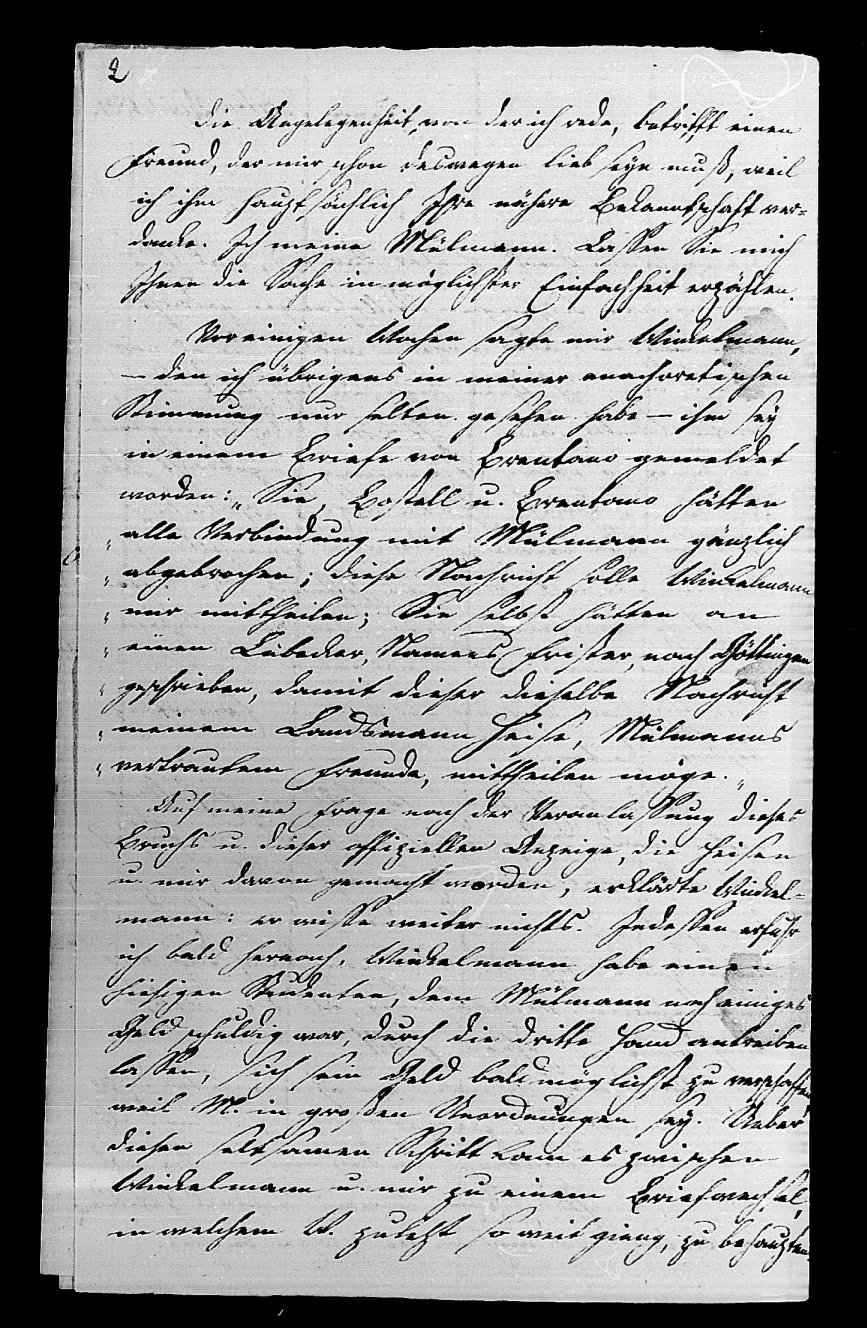 2
Die Angelegenheit, von der ich rede, betrifft einen
Freund, der mir schon deswegen lieb seyn muß, weil
ich ihm hauptsächlich Ihre nähere Bekanntschaft ver-
danke. Ich meine Mülmann. Lassen Sie mich
Ihnen die Sache in möglichster Einfachheit erzählen.
Vor einigen Wochen sagte mir Winkelmann,
– den ich übrigens in meiner anachoretischen
Stimmung nur selten gesehen habe – ihm sey
in einem Briefe von Brentano gemeldet
worden: „Sie, Bostell u. Brentano hätten
„alle Verbindung mit Mülmann gänzlich
„abgebrochen; diese Nachricht solle Winkelmann
„mir mittheilen; Sie selbst hätten an
„einen Lübecker, Namens Frister, nach Göttingen
„geschrieben, damit dieser dieselbe Nachricht
„meinem Landsmann Heise, Mülmanns
„vertrautem Freunde, mittheilen möge.“
Auf meine Frage nach der Veranlassung dieses
Bruchs u. dieser offiziellen Anzeige, die Heisen
u. mir davon gemacht worden, erklärte Winkel-
mann: er wisse weiter nichts. Indessen erfuhr
ich bald hernach, Winkelmann habe einen
hiesigen Studenten, dem Mülmann noch einiges
Geld schuldig war, durch die dritte Hand antreiben
lassen, sich sein Geld baldmöglichst zu verschaffen,
weil M. in großen Unordnungen sey. Ueber
diesen seltsamen Schritt kam es zwischen
Winkelmann u. mir zu einem Briefwechsel,
in welchem W. zuletzt so weit gieng, zu behaupten,